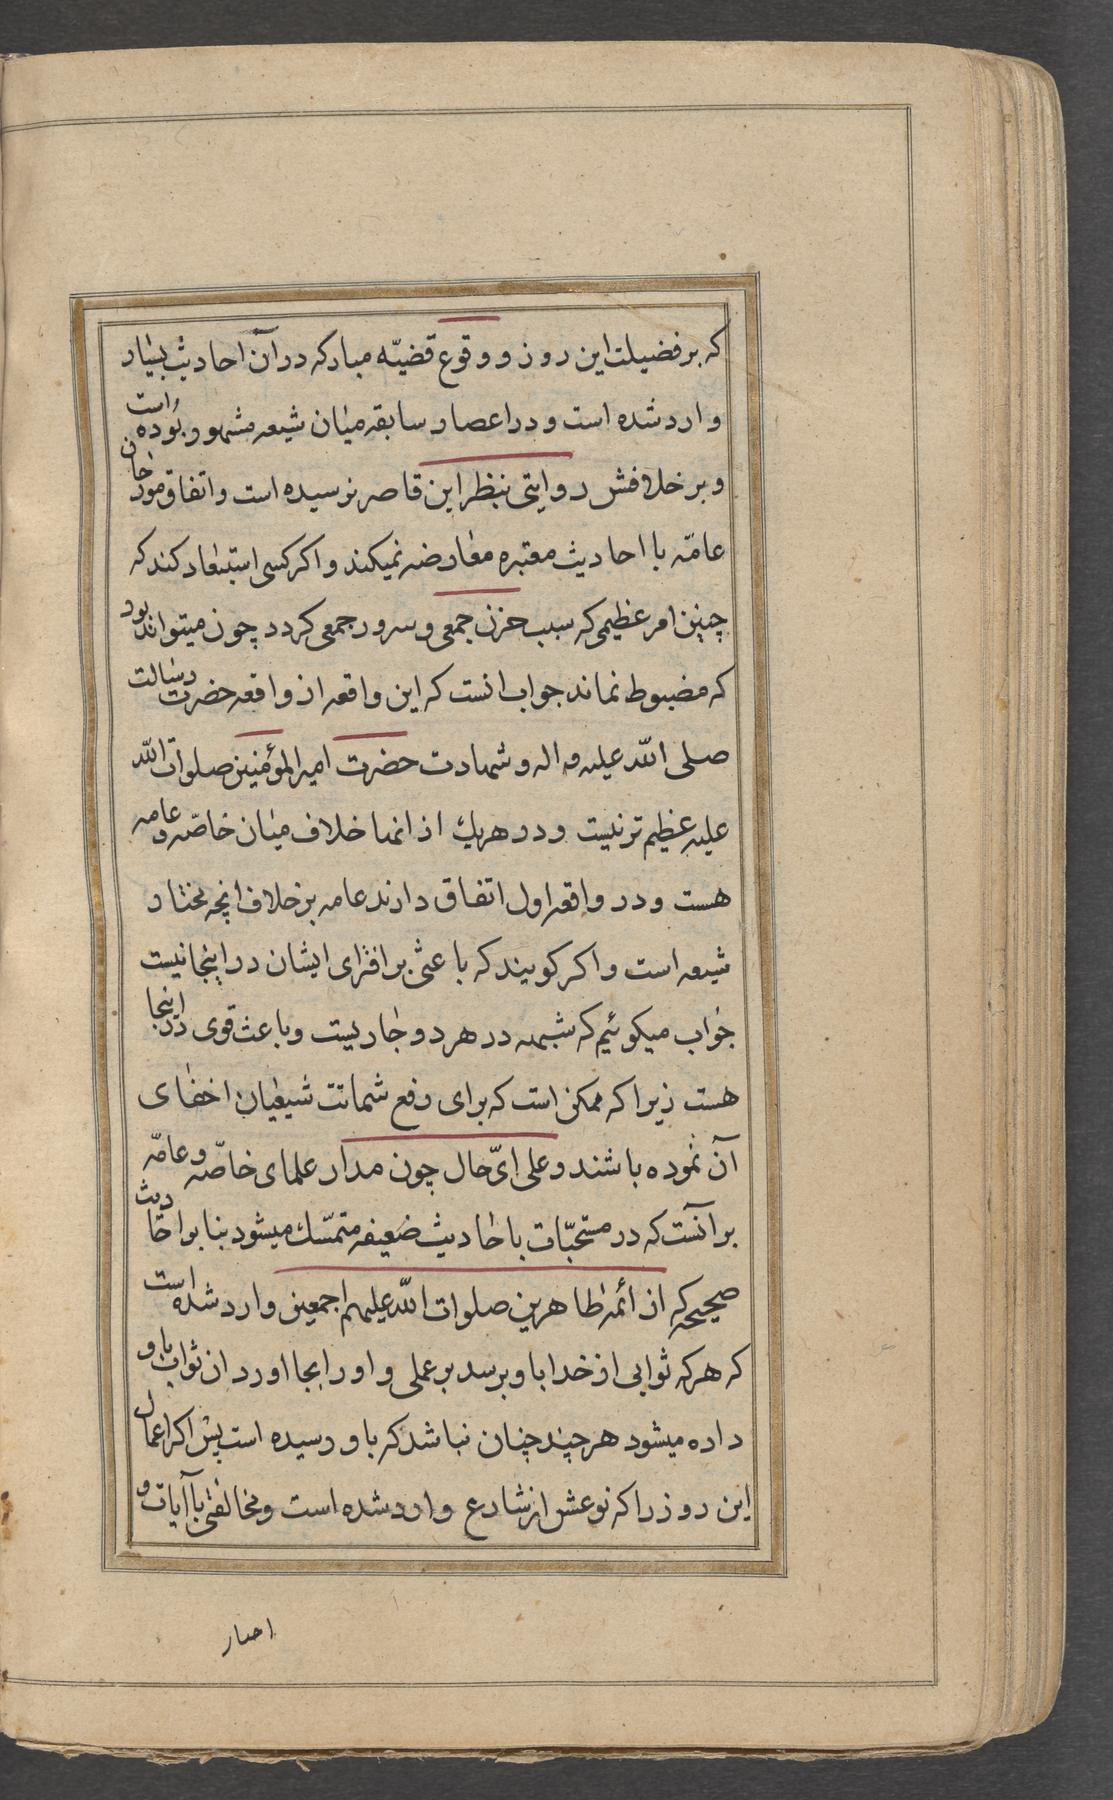 که بر فضیلت این روز و وقوع قضیّه مبارکه در آن احادیث بسیار
وارد شده است و در اعصار سابقه میان شیعه مشهور بوده است
و بر خلافش روایتی بنظر این قاصر نرسیده است و اتفاق مورخان
عامّه با احادیث معتبره معارضه نمیکند و اکر کسی استبعاد کند که
چنین امر عظیمی که سبب حزن جمعی و سرور جمعی کردد چون میتواند بود
که مضبوط نماند جواب انست که این واقعه از واقعه حضرت رسالت
صلی الله علیه و اله و شهادت حضرت امیرالمؤمنین صلوات الله
علیه عظیم تر نیست و در هریك از انها خلاف میان خاصّه و عامه
هست و در واقعه اول اتفاق دارند عامه بر خلاف انچه مختار
شیعه است و اکر کویند که باعثی بر افترای ایشان در اینجا نیست
جواب میکوئیم که شبهه در هر دو جا ریست و باعث قوی در اینجا
هست زیرا که ممکن است که برای رفع شماتت شیعیان اخفای
آن نموده باشند و علی ایّ حال چون مدار علمای خاصّه و عامّه
بر آنست که در مستحبّات باحادیث ضعیفه متمسّك میشود بنا بر احادیث
صحیحه که از ائمه طاهرین صلوات الله علیهم اجمعین وارد شده است
که هر که ثوابی از خدا باو برسد بر عملی و او را بجا اورد ان ثواب باو
داده میشود هر چند چنان نباشد که باو رسیده است پس اکر اعمال
این روز را که نوعش از شارع وارد شده است و مخالفتی با آیات و
اخبار